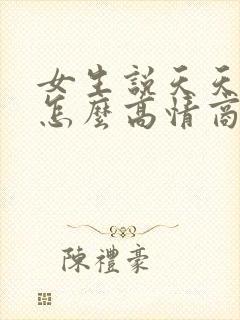 女生說天天
怎麼高情商
陳禮豪